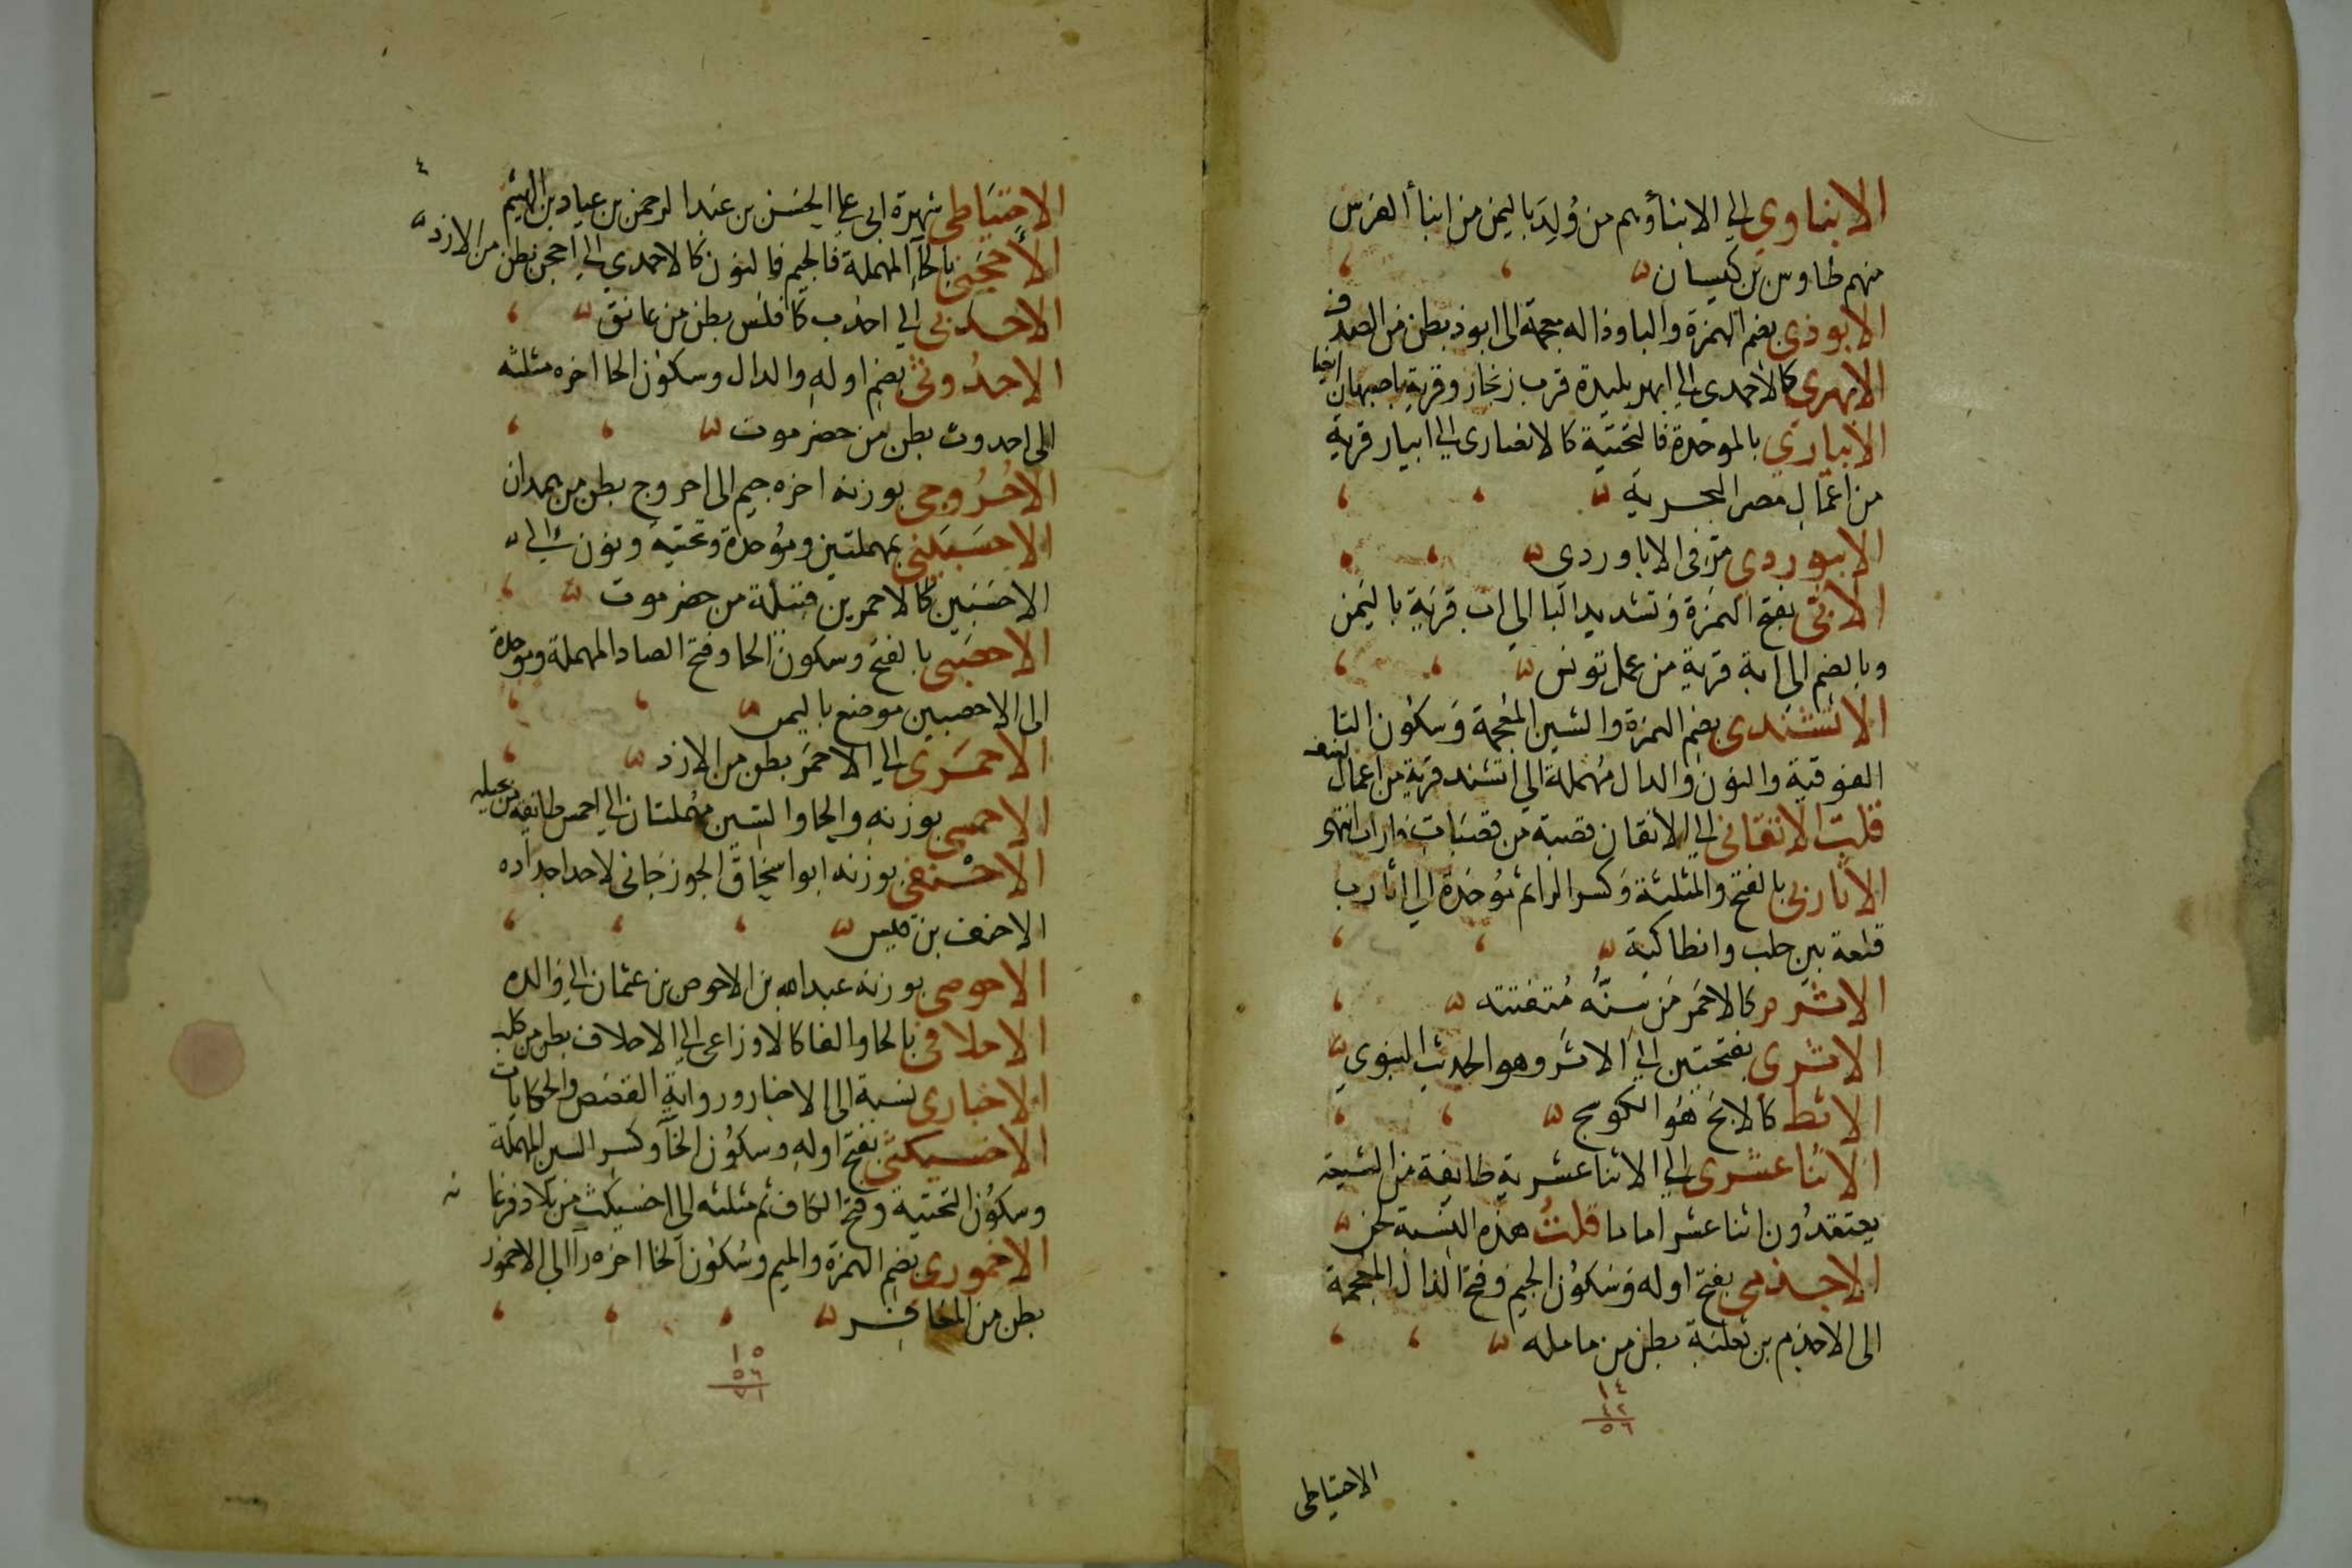 الابناوي الي الابنا وهم من وُلِدَ باليمن من ابنا الفرس
منهم طاوس بن كيسان
الابوذي بضم الهمزة والبا وذاله معجمة الى ابوذ بطن من الصدف
الابهري كالاحمدى الي ابهر بليدة قرب زنجان وقرية باصبهان ايضا
الابياري بالموحدة فالتحتية كالانصارى الي ابيار قرية
من اعمال مصر البحرية
الابيوردي مرّ فى الاباوردى
الابّى بفتح الهمزة وتشديد البا الي اب قرية باليمن
وبالضم الى ابة قرية من عمل تونس
الاتشندى بضم الهمزة والشين المعجمة وسكون التا
الفوقية والنون والدال مهملة الي اتشند قرية من اعمال نسف
قلت الاتقانى الي الاتقان قصبة من قصبات فاراب انتهى
الاثاربى بالفتح والمثلثة وكسر الرا ثم موحدة الي اثارب
قلعة بين حلب وانطاكية
الاثرم كالاحمر من سنّه متفتته
الاثرى بفتحتين الي الاثر وهو الحديث النبوي
الاثط كالابح هو الكوسج
الاثنا عشرى الي الاثنا عشرية طايفة من الشيعة
يعتقدون اثنا عشر اماما قلتُ هذه النسبة لحن
الاجذمى بفتح اوله وسكون الجيم وفتح الذال المعجمة
الى الاجذم بن ثعلبة بطن من عامله
١٤
٤٢
٥٦
الاحتياطى
٤
الاحتياطى شهرة ابى على الحسن بن عبد الرحمن بن عباد بن الهيثم
الاحجنى بالحآ المهملة فالجيم فالنون كالاحمدي الي احجن بطن من الازد
الاحدبى الي احدب كافلس بطن من غافق
الاحدُوثى بضم اوله والدال وسكون الحا اخره مثلثه
الى احدوث بطن من حضرموت
الاحرُوجى بوزنه اخره جيم الى احروج بطن من همدان
الاحسبينى بمهملتين وموحدة وتحتيه ونون الي
الاحسبين كالاحمرين قبيلة من حضرموت
الاحصبى بالفتح وسكون الحا وفتح الصاد المهملة وموحدة
الى الاحصبين موضع باليمن
الاحمرى الي الاحمر بطن من الازد
الاحمسى بوزنه والحا والسين مهملتان الي احمس طايفة من بجيله
الاحنفى بوزنه ابو اسحاق الجوزجانى لاحد اجداده
الاحنف بن قيس
الاحوصى بوزنه عبد الله بن الاحوص بن عثمان الي والده
الاحلافى بالحا والفا كالاوزاعى الي الاحلاف بطن من كلب
الاخبارى نسبة الى الاخبار ورواية القصص والحكايات
الاخسيكثى بفتح اوله وسكون الخآ وكسر السين المهملة
وسكون التحتية وفتح الكاف ثم مثلثه الي اخسيكث من بلاد فرغانه
الاخمورى بضم الهمزة والميم وسكون الخا اخره را الي الاخمور
بطن من المعافر
١٥
٥٦
٧١